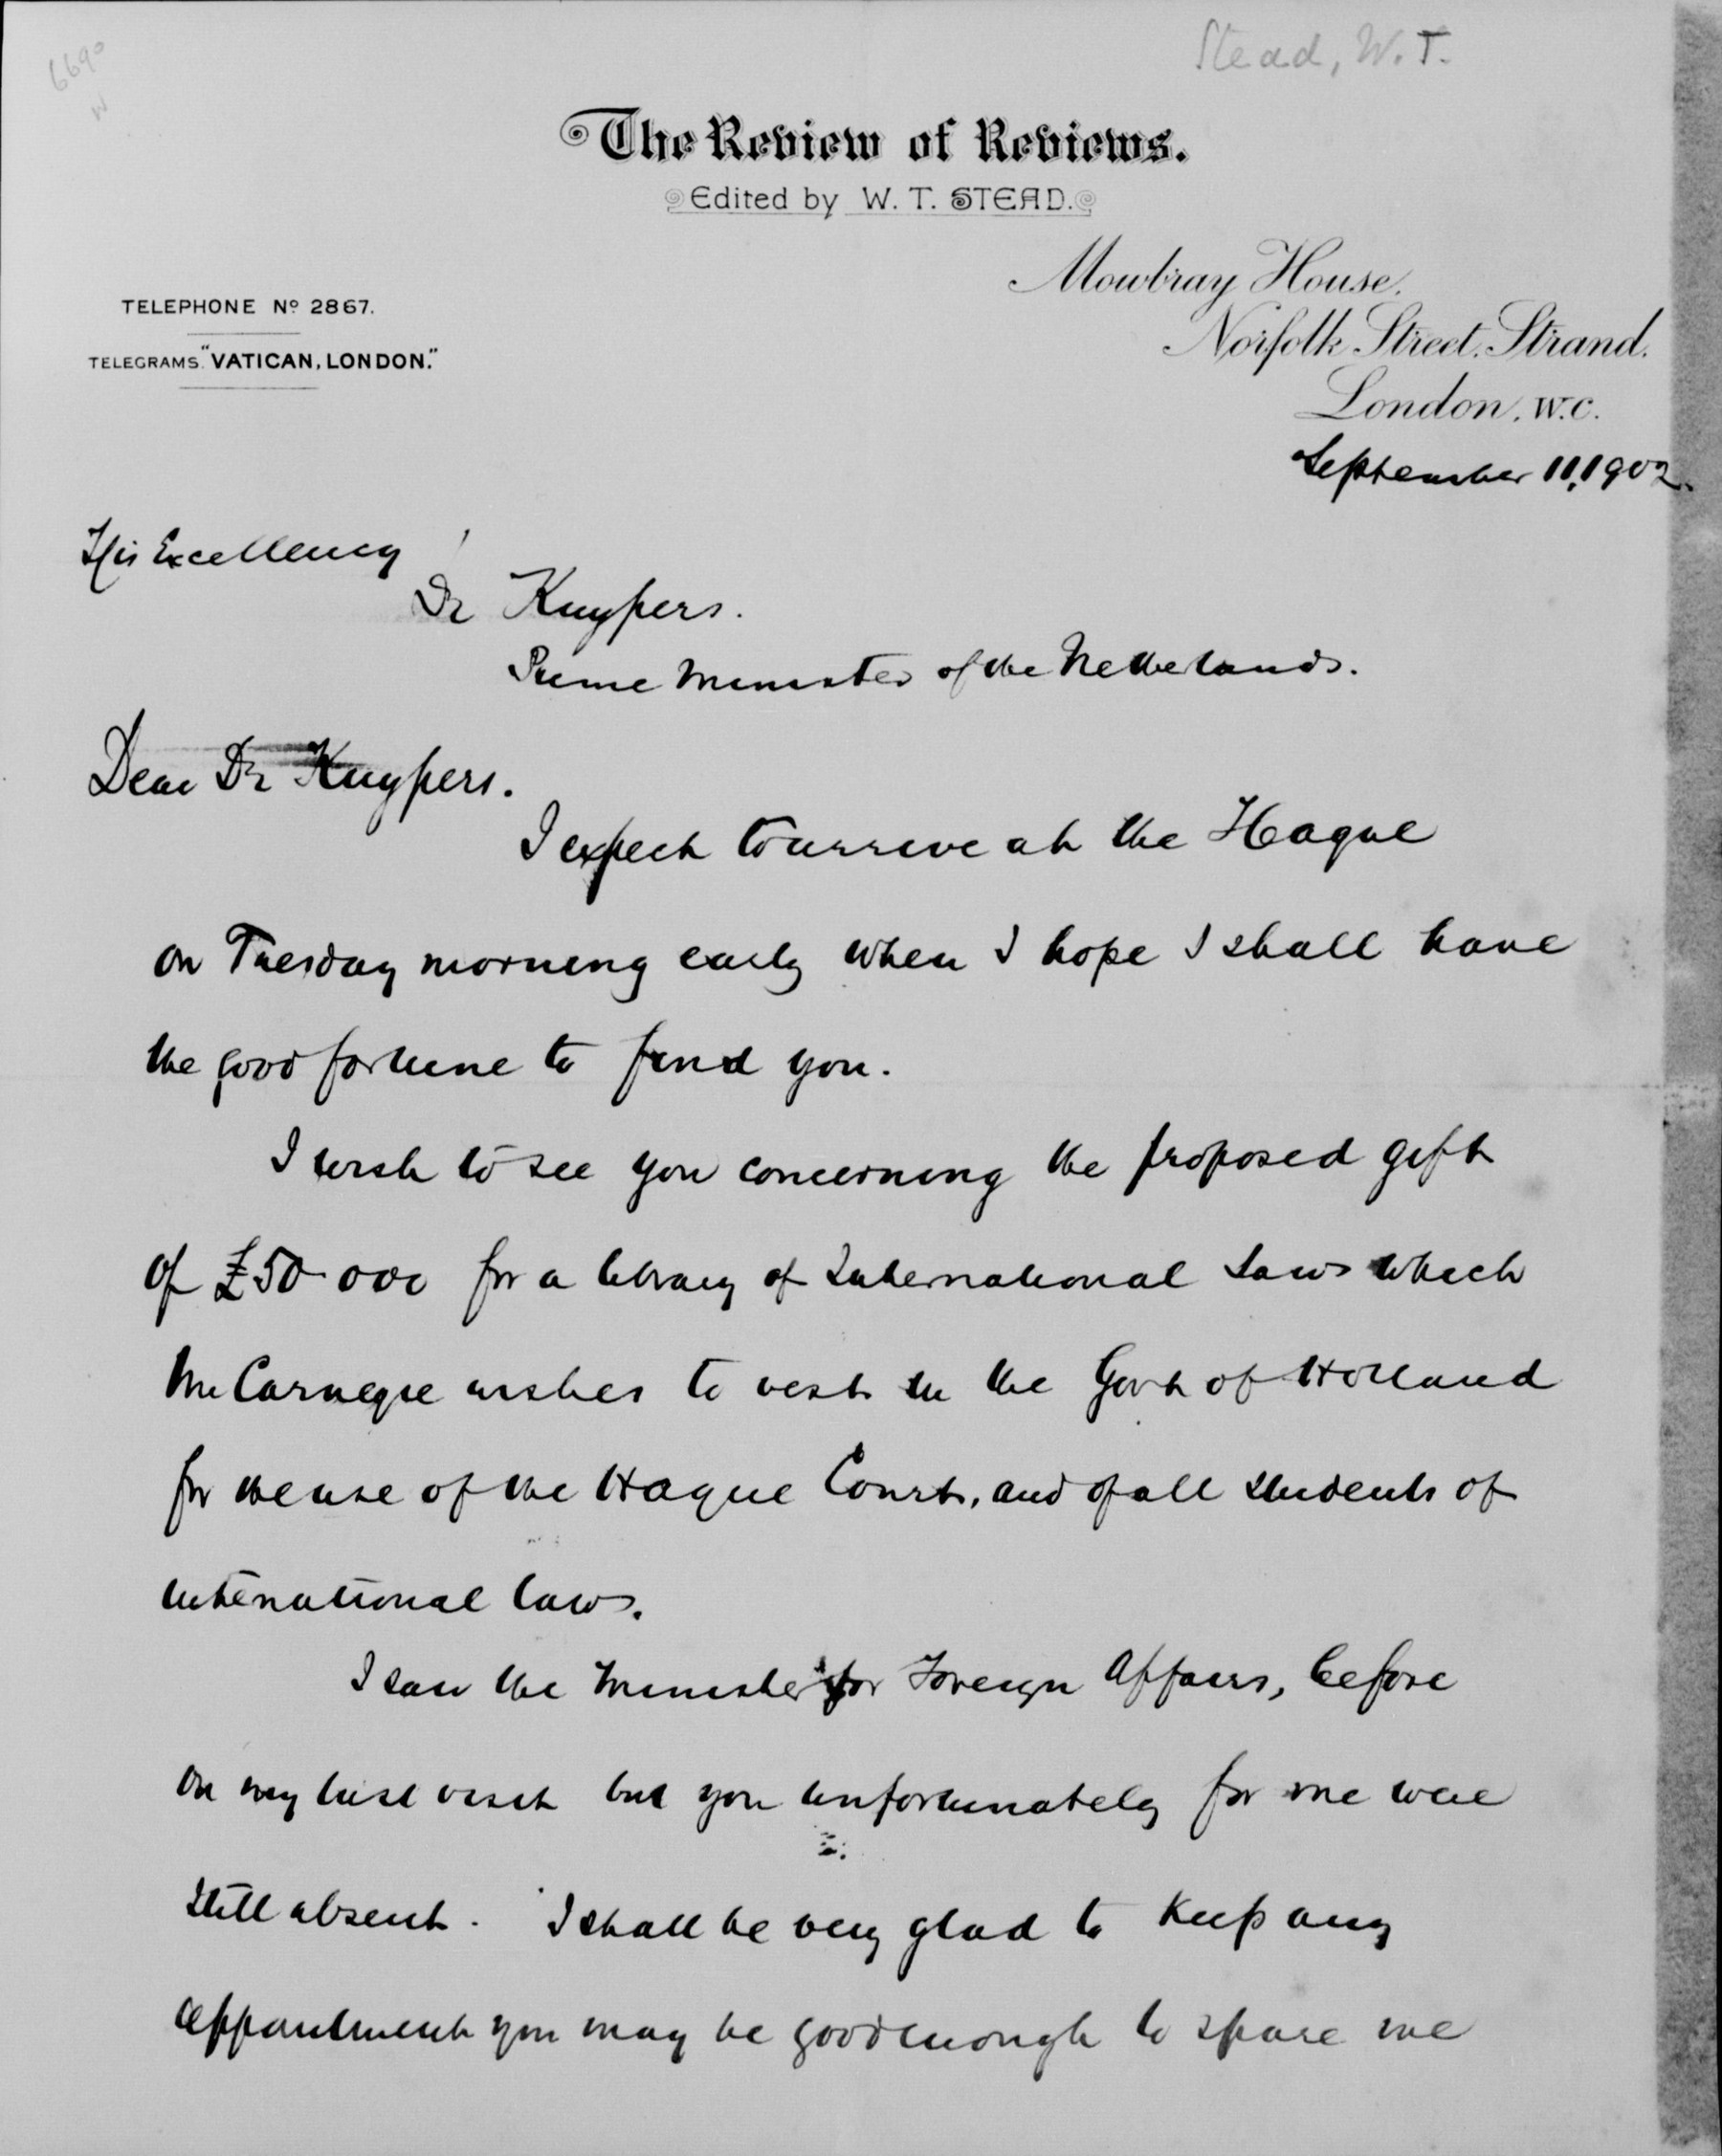 6690
W
Stead, W. T.
The Review of Reviews.
Edited by W. T. STEAD.
TELEPHONE No 2867.
TELEGRAMS. "VATICAN, LONDON."
Mowbray House,
Norfolk Street, Strand,
London, W.C.
September 11, 1902.
His Excellency
Dr Kuypers.
Prime Minister of the Netherlands.
Dear Dr Kuypers.
I expect to arrive at the Hague
on Tuesday morning early when I hope I shall have
the good fortune to find you.
I wish to see you concerning the proposed gift
of £50 000 for a library of International Law which
Mr Carnegie wishes to vest in the Govt of Holland
for the use of the Hague Court, and of all students of
international law.
I saw the Minister for Foreign Affairs, before
on my last visit but you unfortunately for me were
still absent. I shall be very glad to keep any
appointment you may be good enough to spare me